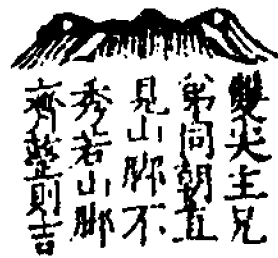 雙尖主兄
弟同朝直
見山脚不
秀若山脚
齊整則吉